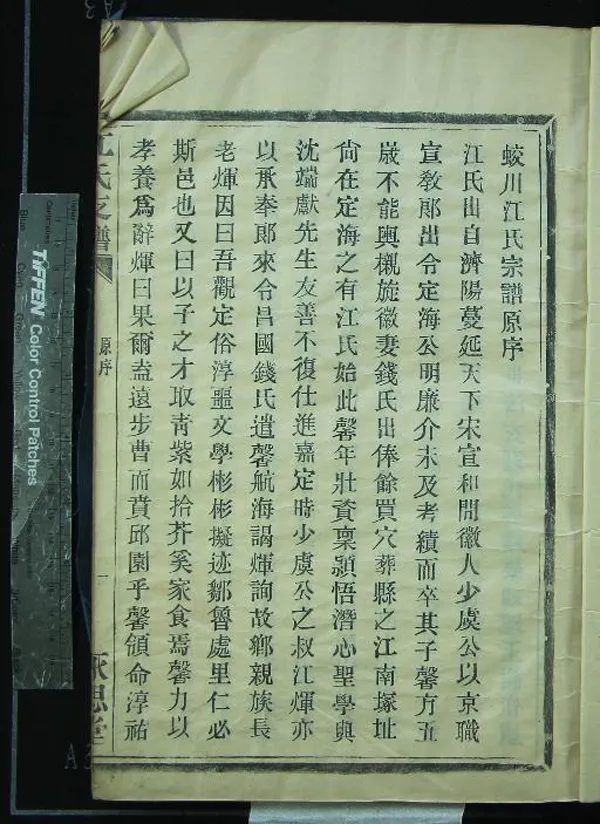 蛟川江氏宗譜原序
江氏出自濟陽蔓延天下宋宣和間徽人少虞公以京職
宣敎郎出令定海公明廉介未及考績而卒其子馨方五
歲不能輿櫬旋徽妻錢氏出俸餘買穴葬縣之江南塚址
尙在定海之有江氏始此馨年壯資稟潁悟潛心聖學與
沈端獻先生友善不復仕進嘉定時少虞公之叔江煇亦
以承奉郎來令昌國錢氏遣馨航海謁煇詢故鄕親族長
老煇因曰吾觀定俗淳噩文學彬彬擬迹鄒魯處里仁必
斯邑也又曰以子之才取靑紫如拾芥奚家食焉馨力以
孝養爲辭煇曰果爾盍遠步曹而賁邱園乎馨領命淳祐
江氏支譜
原序
一
永思堂
A3
A3
TIFFEN Color Control Patches
Centimetres
Blue